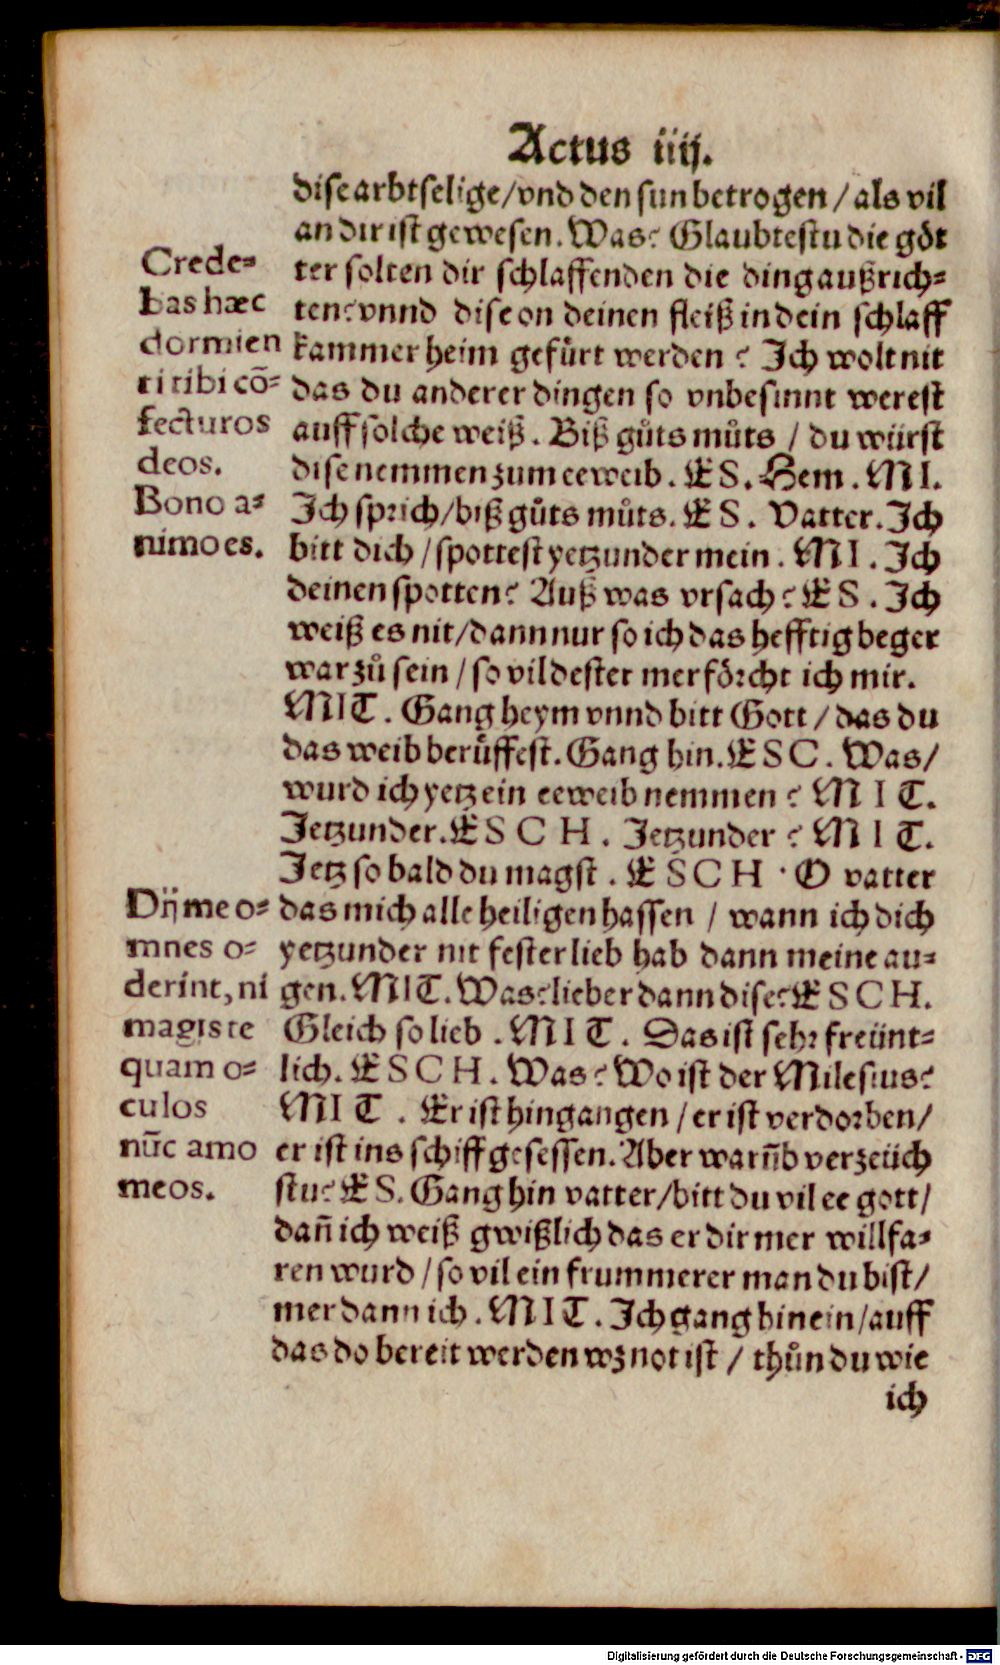 Actus iiij.
dise arbtselige/vnd den sun betrogen/als vil
an dir ist gewesen. Was? Glaubtestu die göt
ter solten dir schlaffenden die ding außrich⸗
ten? vnnd dise on deinen fleiß in dein schlaff
kammer heim gefürt werden? Ich wolt nit
das du anderer dingen so vnbesinnt werest
auff solche weiß. Biß gůts můts / du würst
dise nemmen zum eeweib. ES. Hem. MI.
Ich sprich/biß gůts můts. ES. Vatter. Ich
bitt dich/spottest yetzunder mein. MI. Ich
deinen spotten? Auß was vrsach? ES. Ich
weiß es nit/dann nur so ich das hefftig beger
war zů sein/so vil dester mer förcht ich mir.
MIT. Gang heym vnnd bitt Gott/das du
das weib berůffest. Gang hin. ESC. Was/
wurd ich yetz ein eeweib nemmen? MIT.
Jetzunder. ESCH. Jetzunder? MIT.
Jetz so bald du magst. ESCH. O vatter
das mich alle heiligen hassen / wann ich dich
yetzunder nit fester lieb hab dann meine au⸗
gen. MIT. Was? lieber dann dise? ESCH.
Gleich so lieb. MIT. Das ist sehr freünt⸗
lich. ESCH. Was? Wo ist der Milesius?
MIT. Er ist hingangen/er ist verdorben/
er ist ins schiff gesessen. Aber warum̃b verzeüch
stu? ES. Gang hin vatter/bitt du vil ee gott/
dañ ich weiß gwißlich das er dir mer willfa⸗
ren wurd/so vil ein frummerer man du bist/
mer dann ich. MIT. Ich gang hinein/auff
das do bereit werden wz not ist / thůn du wie
ich
Crede⸗
bas hæc
dormien
ti tibi cõ⸗
fecturos
deos.
Bono a⸗
nimo es.
Dij me o⸗
mnes o⸗
derint, ni
magis te
quam o⸗
culos
nũc amo
meos.
Digitalisierung gefördert durch die Deutsche Forschungsgemeinschaft - DFG